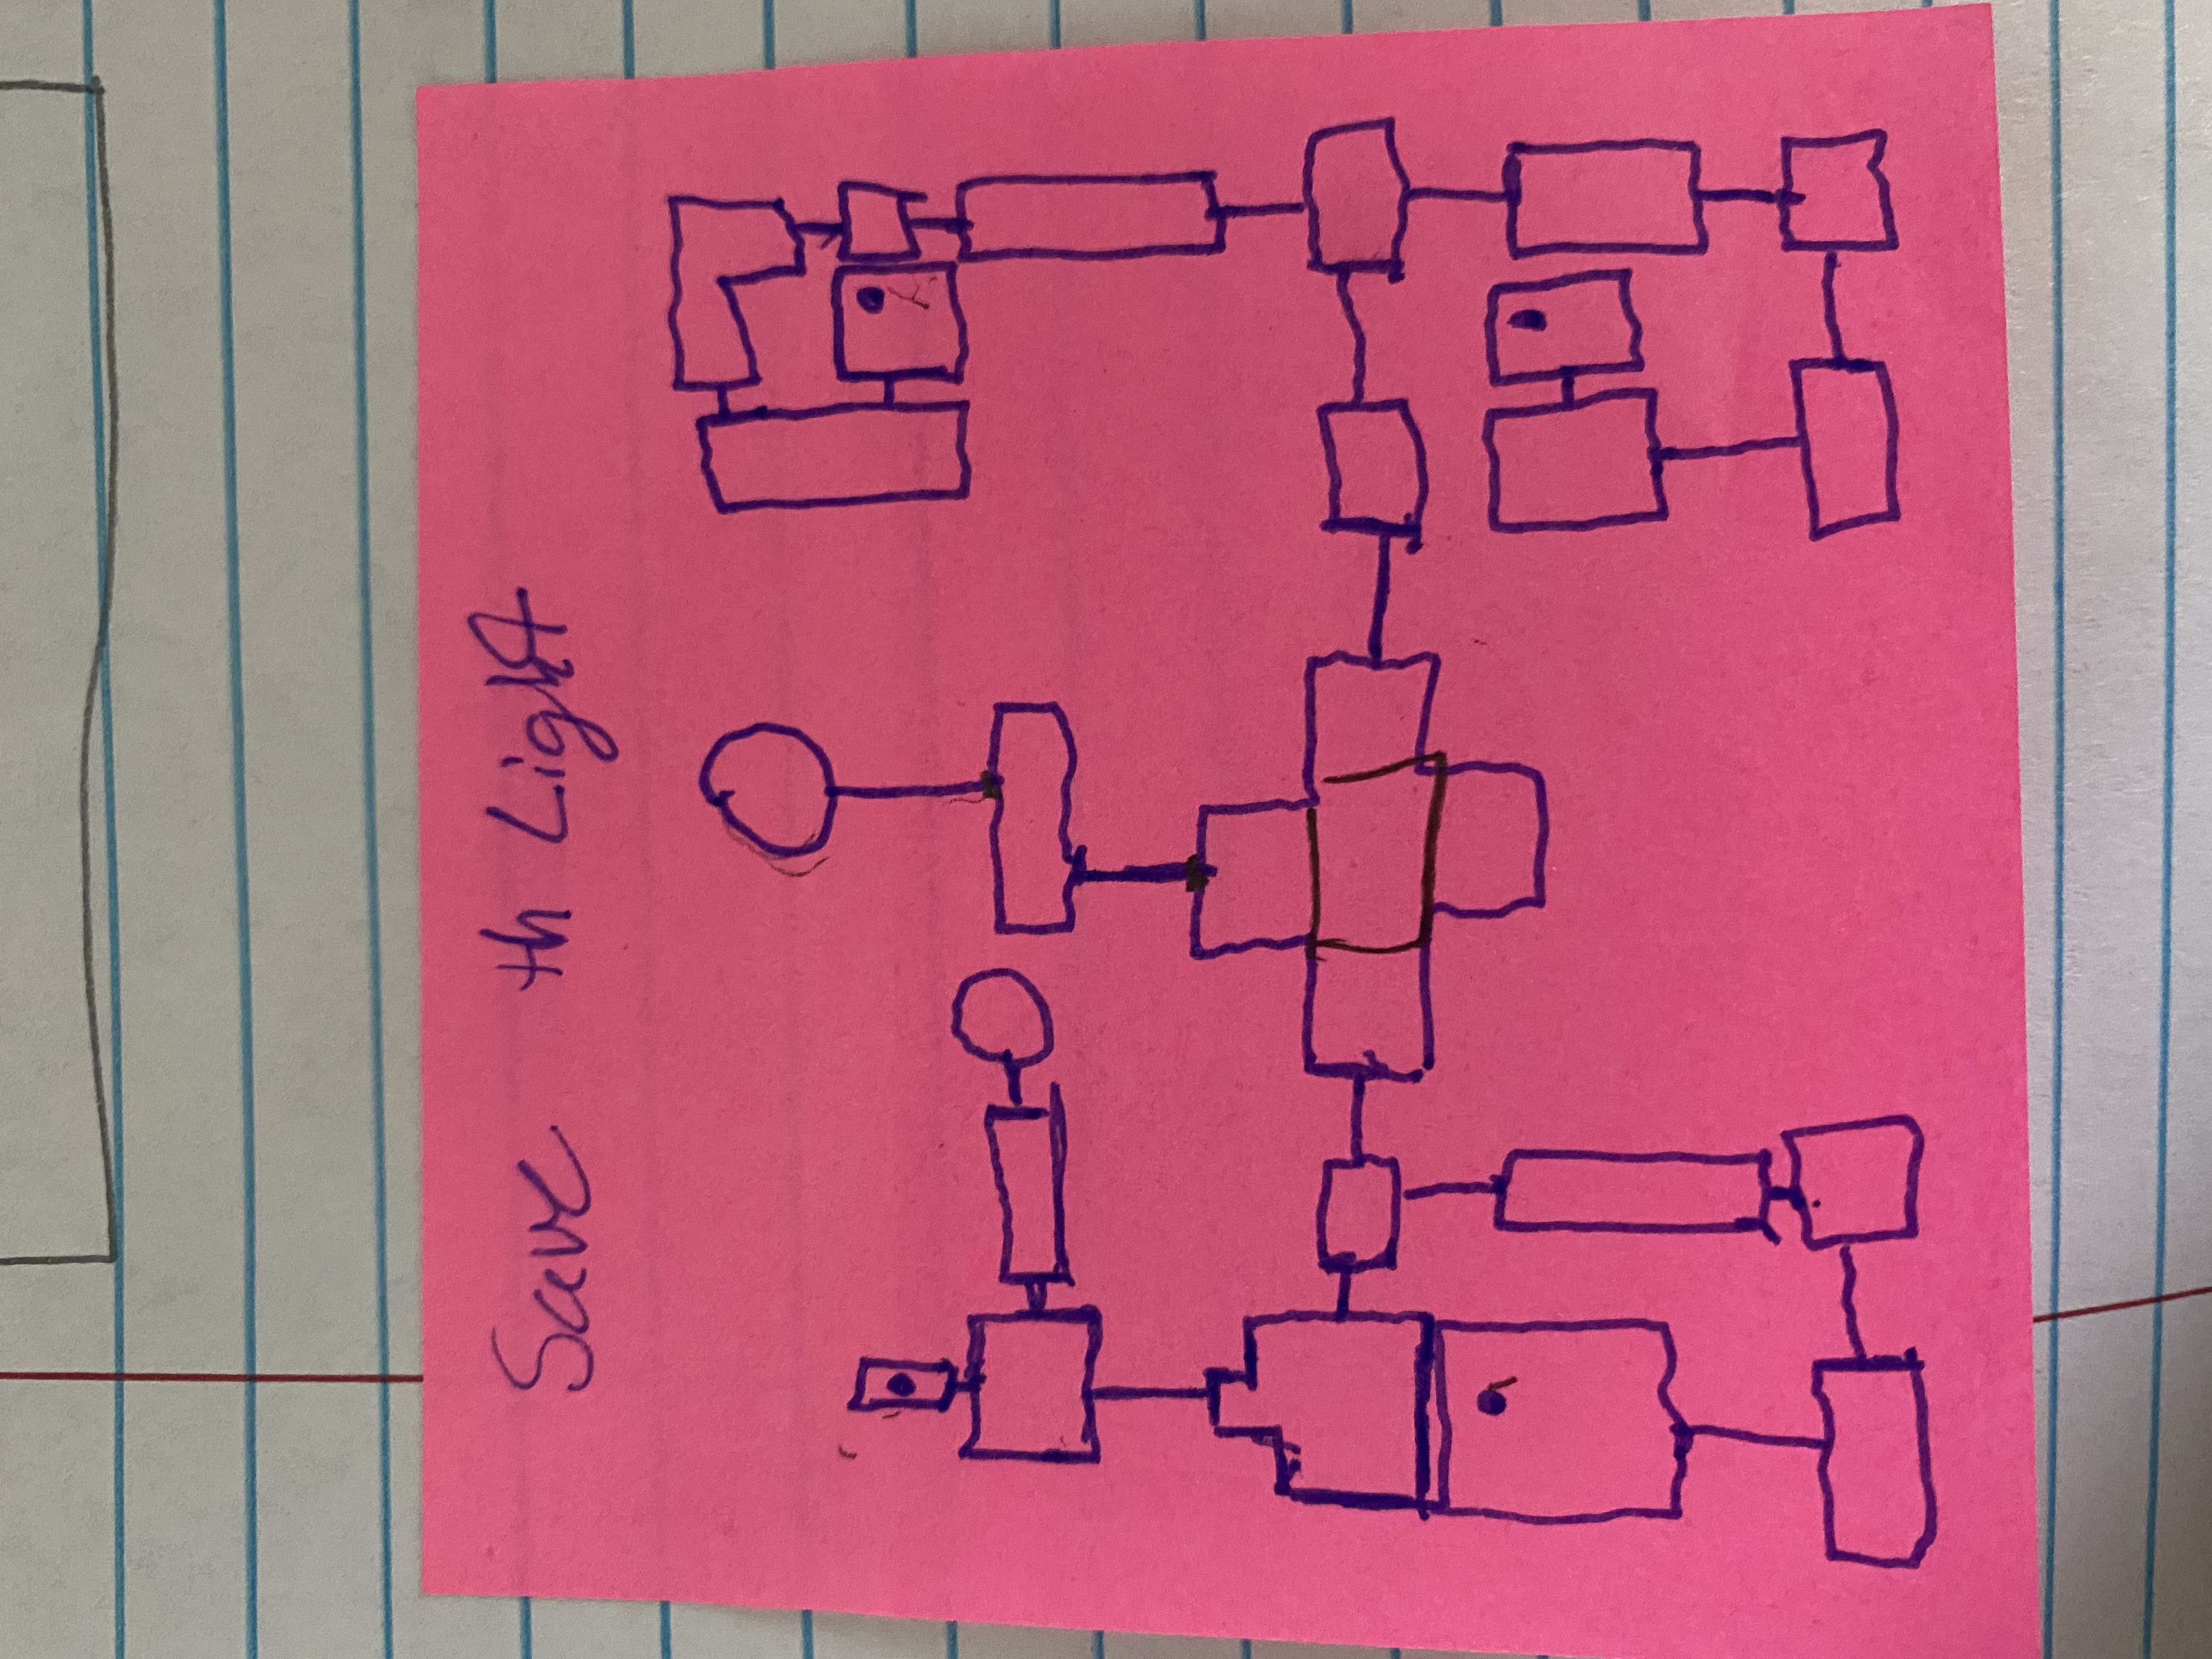 Save th Light